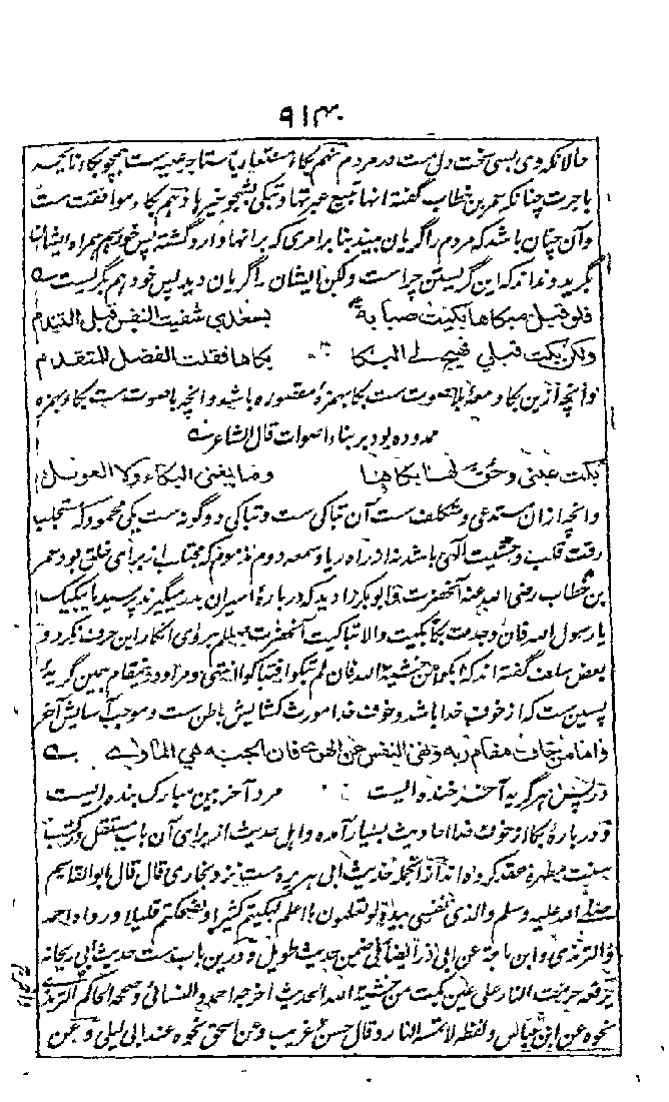 حالانکه وی بسی سخت دل ست در مردم نهم بکاء مستعار یا مستاجر علیه ست همچو بکاء نائحه
باجرت چنانکه عمر بن خطاب گفته انها تبیع عبرتها و تبکی شجو غیرها دهم بکاء موافقت ست
و آن چنان باشد که مردم را گریان بیند بنا بر امری که بر آنها وارد گشته پس خود هم همراه ایشان
بگرید و نداند که این گریستن چراست ولکن ایشان را گریان دید پس خود هم بگریست
فلو قبل مبکاها بکیت صبابة بسعدی شفیت النفس قبل التندم
ولکن بکت قبلی فهیج لی البکا بکاها فقلت الفضل للمتقدم
و آنچه ازین بکا دمعه بلا صوت ست بکا بهمزهٔ مقصوره باشد و آنچه با صوت ست بکاء بهمزه
ممدوده بود بر بناء اصوات قال الشاعر
بکت عینی و حق لها بکاها وما یغنی البکاء ولا العویل
و آنچه ازان مستدعی و متکلف ست آن تباکی ست و تباکی دو گونه ست یکی محمود که مستجلب
رقت قلب و خشیت الهی باشد نه از راه ریا و سمعه دوم مذموم که مجتلب از برای خلق بود عمر
بن خطاب رضی الله عنه آنحضرت و ابو بکر را دید که دربارهٔ اسیران بدر میگریند پرسید ما یبکیک
یا رسول الله فان وجدت بکاء بکیت والا تباکیت آنحضرت صللم بر وی انکار این حرف نکرد و
بعض سلف گفته اند که ابکوا من خشیة الله فان لم تبکوا فتباکوا انتهی و مراد درینمقام همین گریهٔ
پسین ست که از خوف خدا باشد و خوف خدا مورث کشایش باطن ست و موجب آسایش آخر
و اما من خاف مقام ربه و نهی النفس عن الهوی فان الجنة هی الماوی
در پس هر گریه آخر خنده ایست مرد آخر بین مبارک بنده ایست
و دربارهٔ بکا از خوف خدا احادیث بسیار آمده و اهل حدیث از برای آن باب مستقل در کتب
سنت مطهره عقد کرده اند از انجمله حدیث ابی هریره ست نزد بخاری قال قال ابو القاسم
صلی الله علیه وسلم والذی نفسی بیده لو تعلمون ما اعلم لبکیتم کثیرا ولضحکتم قلیلا ورواه احمد
والترمذی وابن ماجة عن ابی ذر ایضا فی ضمن حدیث طویل و درین باب ست حدیث ابی ریحانه
یرفعه حرمت النار علی عین بکت من خشیة الله الحدیث اخرجه احمد والنسائی وصححه الحاکم الترمذی
نحوه عن ابن عباس ولفظه لا تمسه النار وقال حسن غریب وعن اسحق نحوه عند ابی لیلی وعن